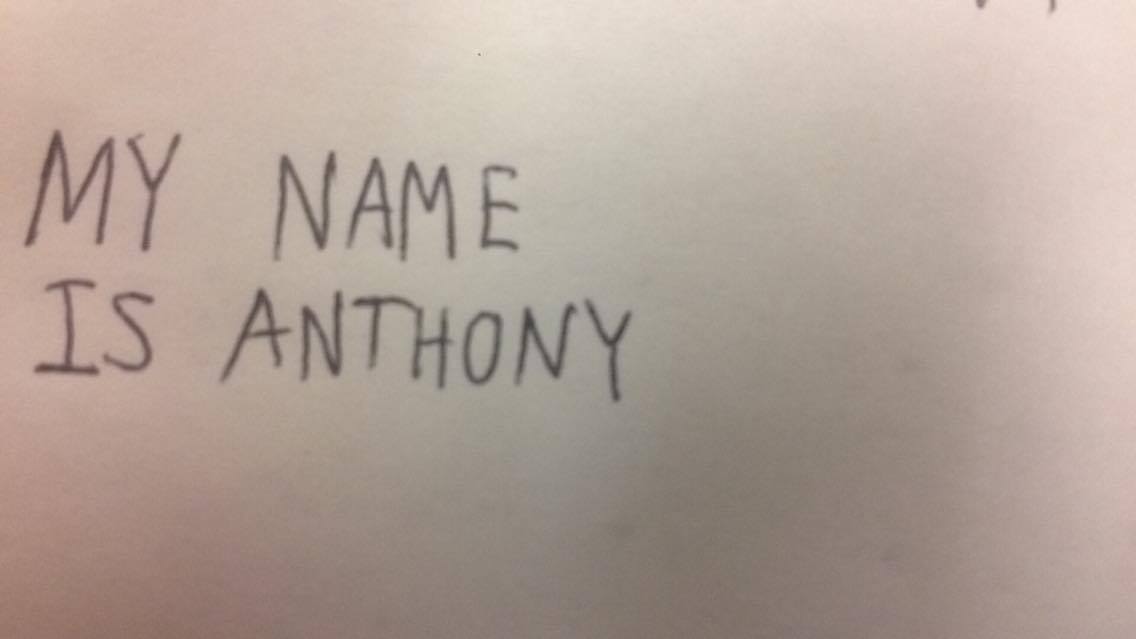 MY NAME
IS ANTHONY